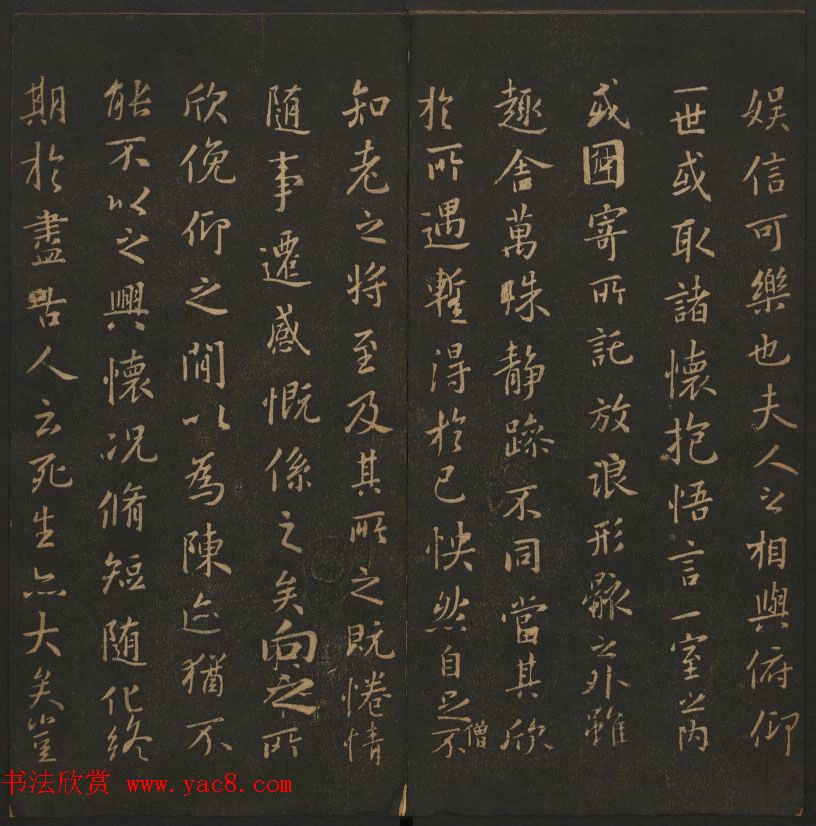 娛信可樂也夫人之相與俯仰
一世或取諸懷抱悟言一室之內
或因寄所託放浪形骸之外雖
趣舍萬殊静躁不同當其欣
於所遇暫得於己怏然自足不
僧
知老之將至及其所之既惓情
隨事遷感慨係之矣向之所
欣俛仰之閒以為陳迹猶不
能不以之興懷況脩短隨化終
期於盡古人云死生亦大矣豈
书法欣赏 www.yac8.com